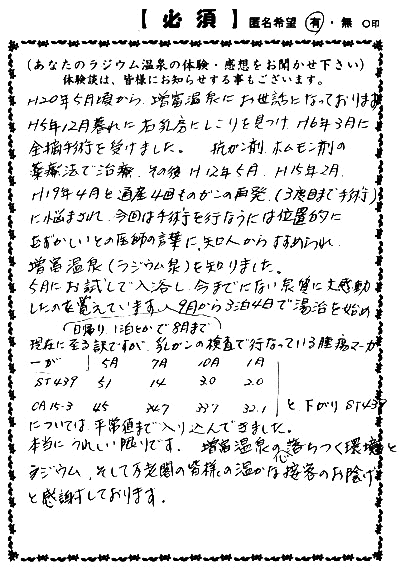 【必須】 匿名希望 有・無 ○印
(あなたのラジウム温泉の体験・感想をお聞かせ下さい)
体験談は、皆様にお知らせする事もございます。
H20年5月頃から、増富温泉にお世話になっております
H5年12月暮れに右乳房にしこりを見つけ、H6年3月に
全摘手術を受けました。 抗がん剤、ホルモン剤の
薬療法で治療、その後H12年5月、H15年2月、
H19年4月と通産4回ものガンの再発、(3度目まで手術)
に悩まされ、今回は手術を行なうには位置的に
むずかしいとの医師の言葉に、知人からすすめられ、
増富温泉(ラジウム泉)を知りました。
5月にお試しで入浴し、今までにない泉質に大感動
したのを覚えています。9月から3泊4日で湯治を始め
日帰り、1泊とかで8月まで
現在に至る訳ですが、乳がンの検査で行なっている腫瘍マーカ
ーが 5月 7月 10月 1月
ST439 51 14 3.0 2.0
CA15-3 45 34.7 33.7 32.1 と下がり ST439
については、平常値まで入り込んできました。
本当にうれしい限りです。 増富温泉の落ちつく環境と
心
ラジウム、そして万老閣の皆様の温かな接客のお陰げ
と感謝しております。